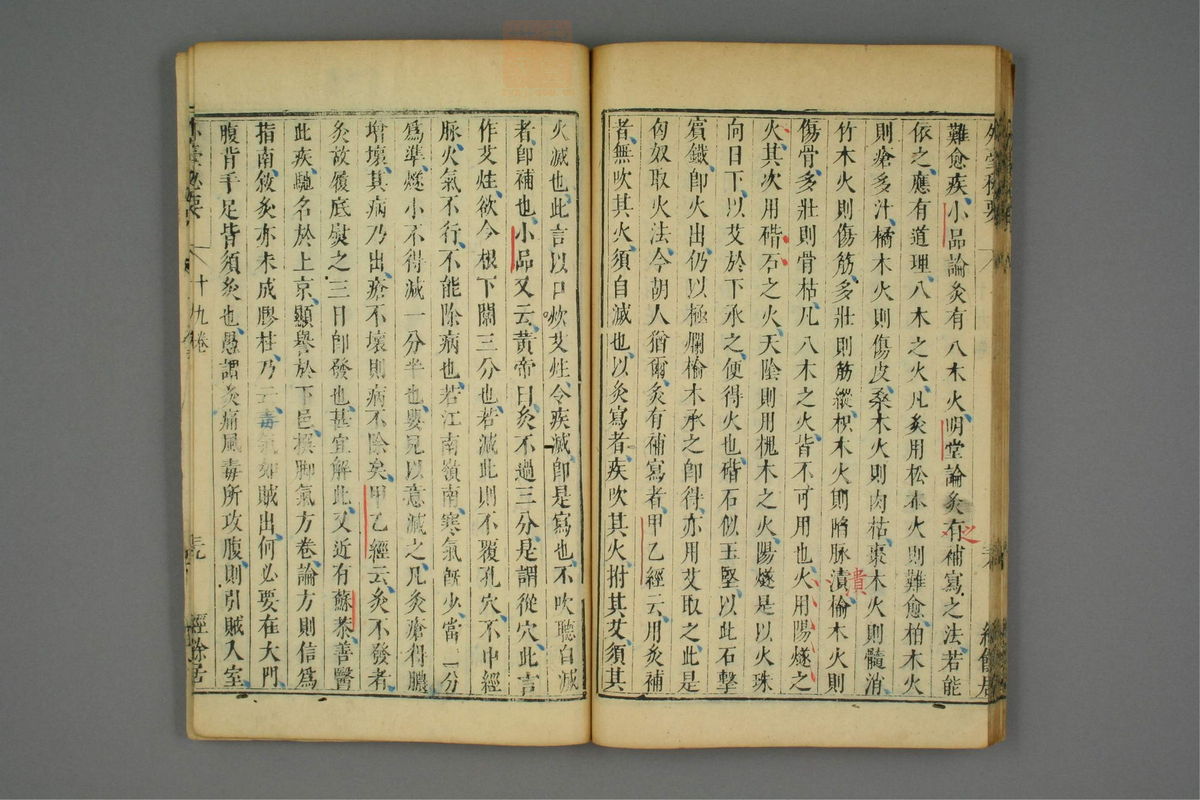 難愈疾小品論灸有八木火明堂論灸有補寫之法若能
之
依之應有道理八木之火凡灸用松木火則難愈柏木火
則瘡多汁橘木火則傷皮桑木火則肉枯棗木火則髓消
竹木火則傷筋多壯則筋縱枳木火則陷脉潰榆木火則
潰
傷骨多壯則骨枯凡八木之火皆不可用也火用陽燧之
火其次用䃈石之火天陰則用槐木之火陽燧是以火珠
向日下以艾於下承之便得火也䃈石似玉堅以此石擊
賓鐵卽火出仍以極爛榆木承之卽得亦用艾取之此是
匈奴取火法今胡人猶爾灸有補寫者甲乙經云用灸補
者無吹其火須自滅也以灸寫者疾吹其火拊其艾須其
火滅也此言以口吹艾炷令疾滅卽是寫也不吹聽自滅
者卽補也小品又云黃帝曰灸不過三分是謂從穴此言
作艾炷欲令根下闊三分也若減此則不覆孔穴不中經
脉火氣不行不能除病也若江南嶺南寒氣旣少當二分
爲準燧小不得減一分半也嬰兒以意減之凡灸瘡得膿
增壞其病乃出瘡不壞則病不除矣甲乙經云灸不發者
灸故履底熨之三日卽發也甚宜解此又近有蘇恭善醫
此疾馳名於上京顯譽於下邑撰脚氣方卷論方則信爲
指南敘灸亦未成膠柱乃云毒氣如賊出何必要在大門
腹背手足皆須灸也愚謂灸痛風毒所攻腹則引賊入室
外臺秘要
十九卷
三九
經餘居